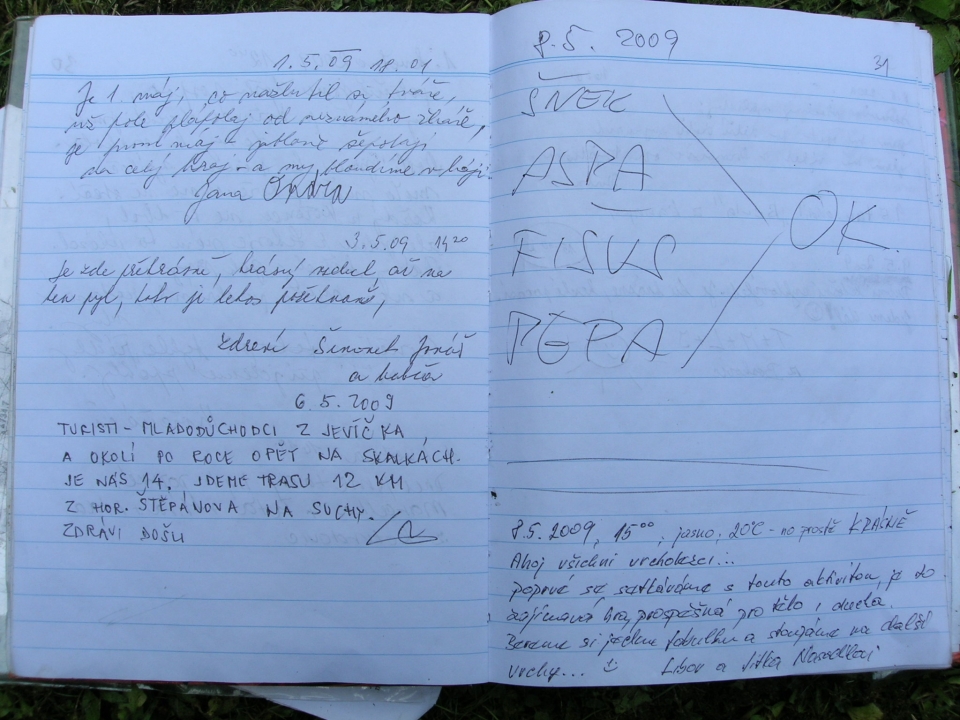 1.5.09 18.01
Je 1 máj, co
pole plápolaj od neznámého žháře,
je první máj a jabloně šeptaj
do celý kraj - a my bloudíme v háji.
Jana Ondra
3.5.09 14 20
Je zde překrásně, krásný vzduch, až na
ten pyl, toho je letos požehnaně,
Zdraví Šimonek Jonáš
a babča
6.5.2009
TURISTI - MLADODŮCHODCI Z JEVÍČKA,
A OKOLÍ PO ROCE OPĚT NA SKALKÁCH.
JE NÁS 14. JDEME TRASU 12 KM
Z HOR. ŠTĚPÁNOVA NA SUCHÝ.
ZDRÁVI DOŠLI
8.5. 2009
31
ŠNEK
ASPA
FISUS
PEPA
OK.
8.5.2009, 15 00, jasno, 20°C - no prostě KRÁSNĚ
Ahoj všichni vrcholáci...
poprvé se setkáváme s touto aktivitou, je to
zajímavá hra, prospěšná pro tělo i ducha.
Bereme si jednu tabulku a stoupáme na další
vrchy... Libor a Jitka